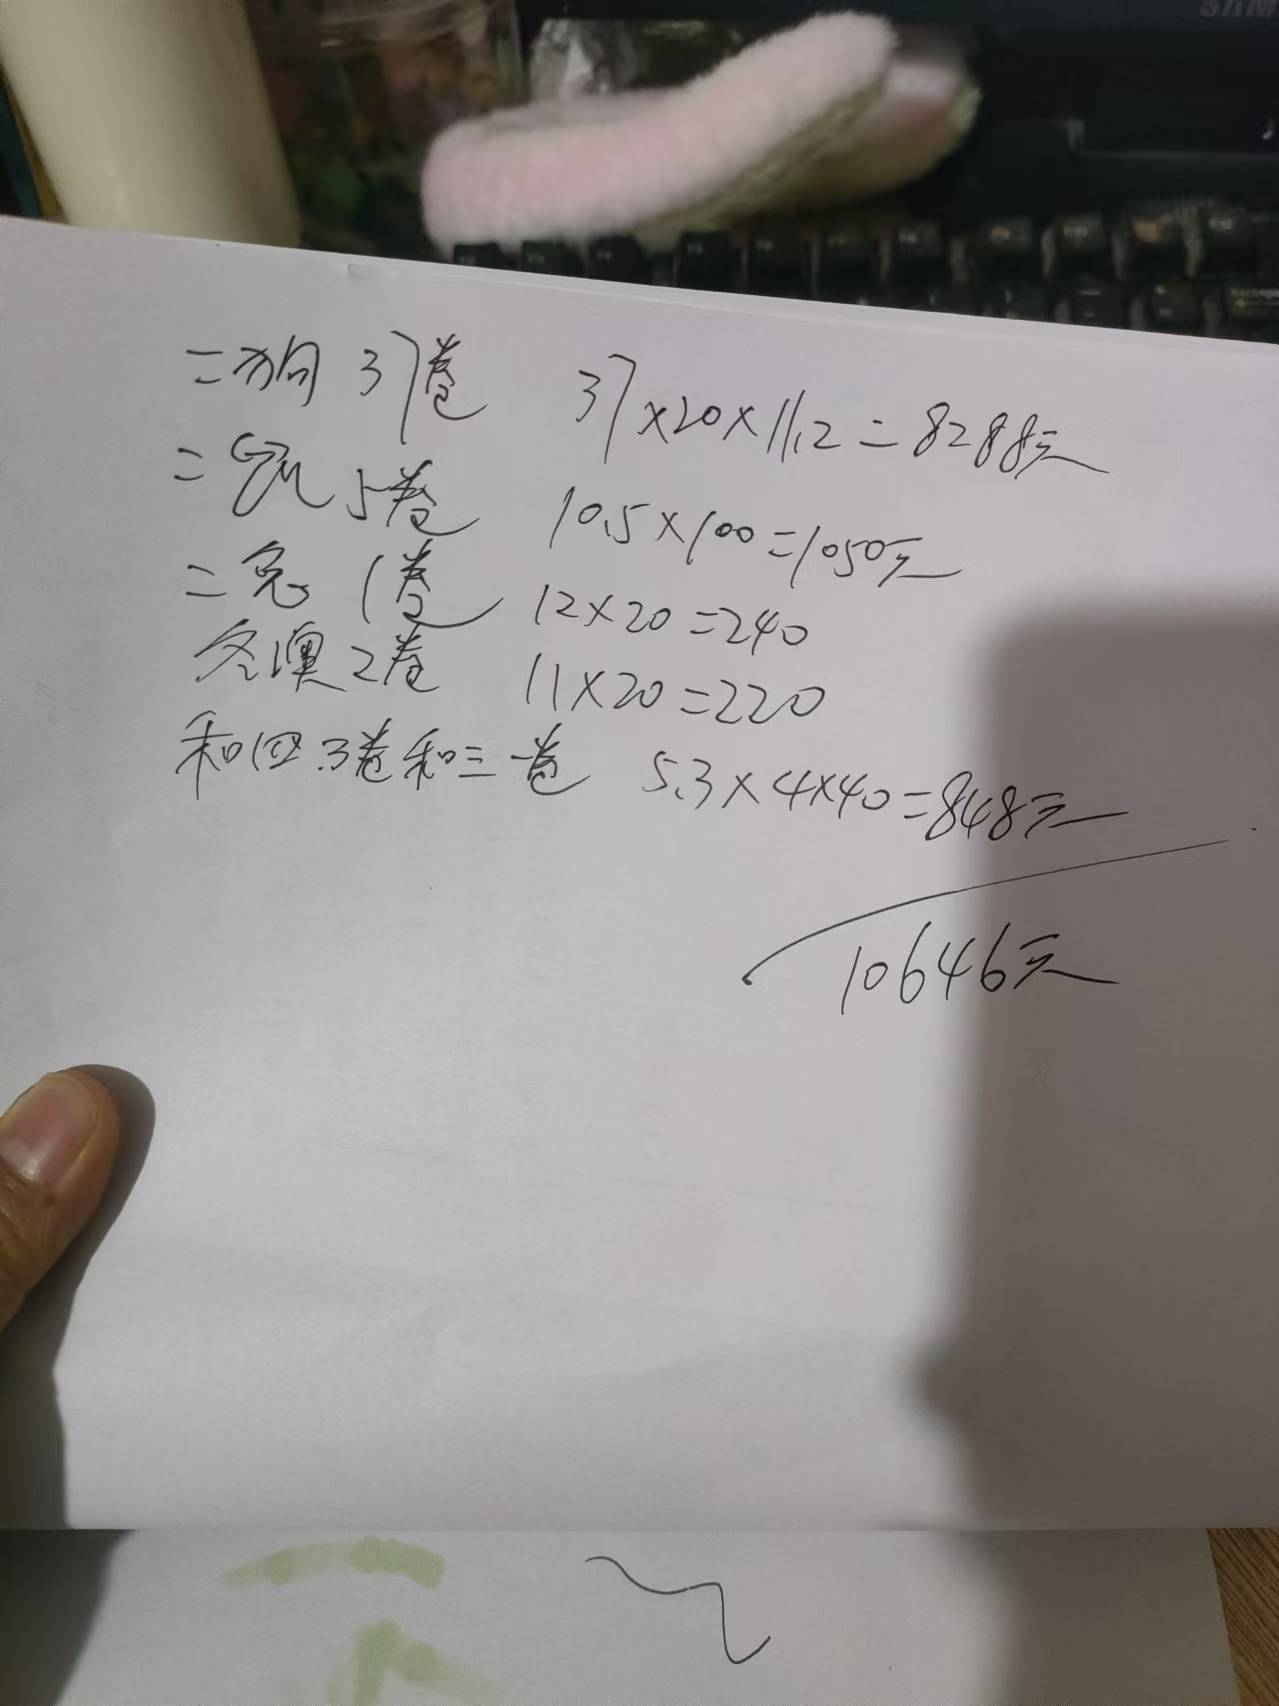 SAM
二狗 37卷 37×20×11.2=8288元
二 5卷 10.5×100=1050元
二兔 1卷 12×20=240
冬澳2卷 11×20=220
和四.3卷和三一卷 5.3×4×40=848元
10646元